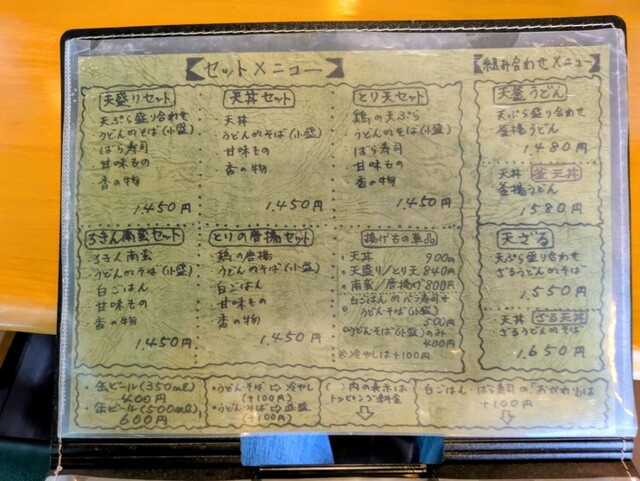 セットメニュー
天盛りセット
天ぷら盛り合わせ
うどん or そば (小盛)
ばら寿司
甘味もの
香の物
1.450円
天丼セット
天丼
うどん or そば (小盛)
甘味もの
香の物
1.450円
とり天セット
鶏の天ぷら
うどん or そば (小盛)
ばら寿司
甘味もの
香の物
1.450円
南蛮セット
南蛮
うどん or そば (小盛)
白ごはん
甘味もの
香の物
1.450円
とりの唐揚セット
鶏の唐揚
うどん or そば (小盛)
白ごはん
甘味もの
香の物
1.450円
揚げもの単品
・天丼 900円
・天盛り/とり天 840円
・南蛮/唐揚 800円
白ごはん or バラ寿司+
うどん or そば (小盛)
500円
うどん or そば (小盛) のみ
400円
※冷やしは+100円
組み合わせメニュー
天釜うどん
天ぷら盛り合わせ
釜揚うどん
1.480円
天丼 釜天丼
釜揚うどん
1580円
天ざる
天ぷら盛り合わせ
ざるうどん or そば
1.550円
天丼 ざる天丼
ざるうどん or そば
1.650円
・缶ビール (350ml)
400円
・缶ビール (500ml)
600円
・うどん・そば⇨冷やし
(+100円)
・うどん・そば⇨並盛
(+100円)
( )内の表示は
トッピング料金
⇩
白ごはん・ばら寿司の「おかわり」は
+100円
⇩